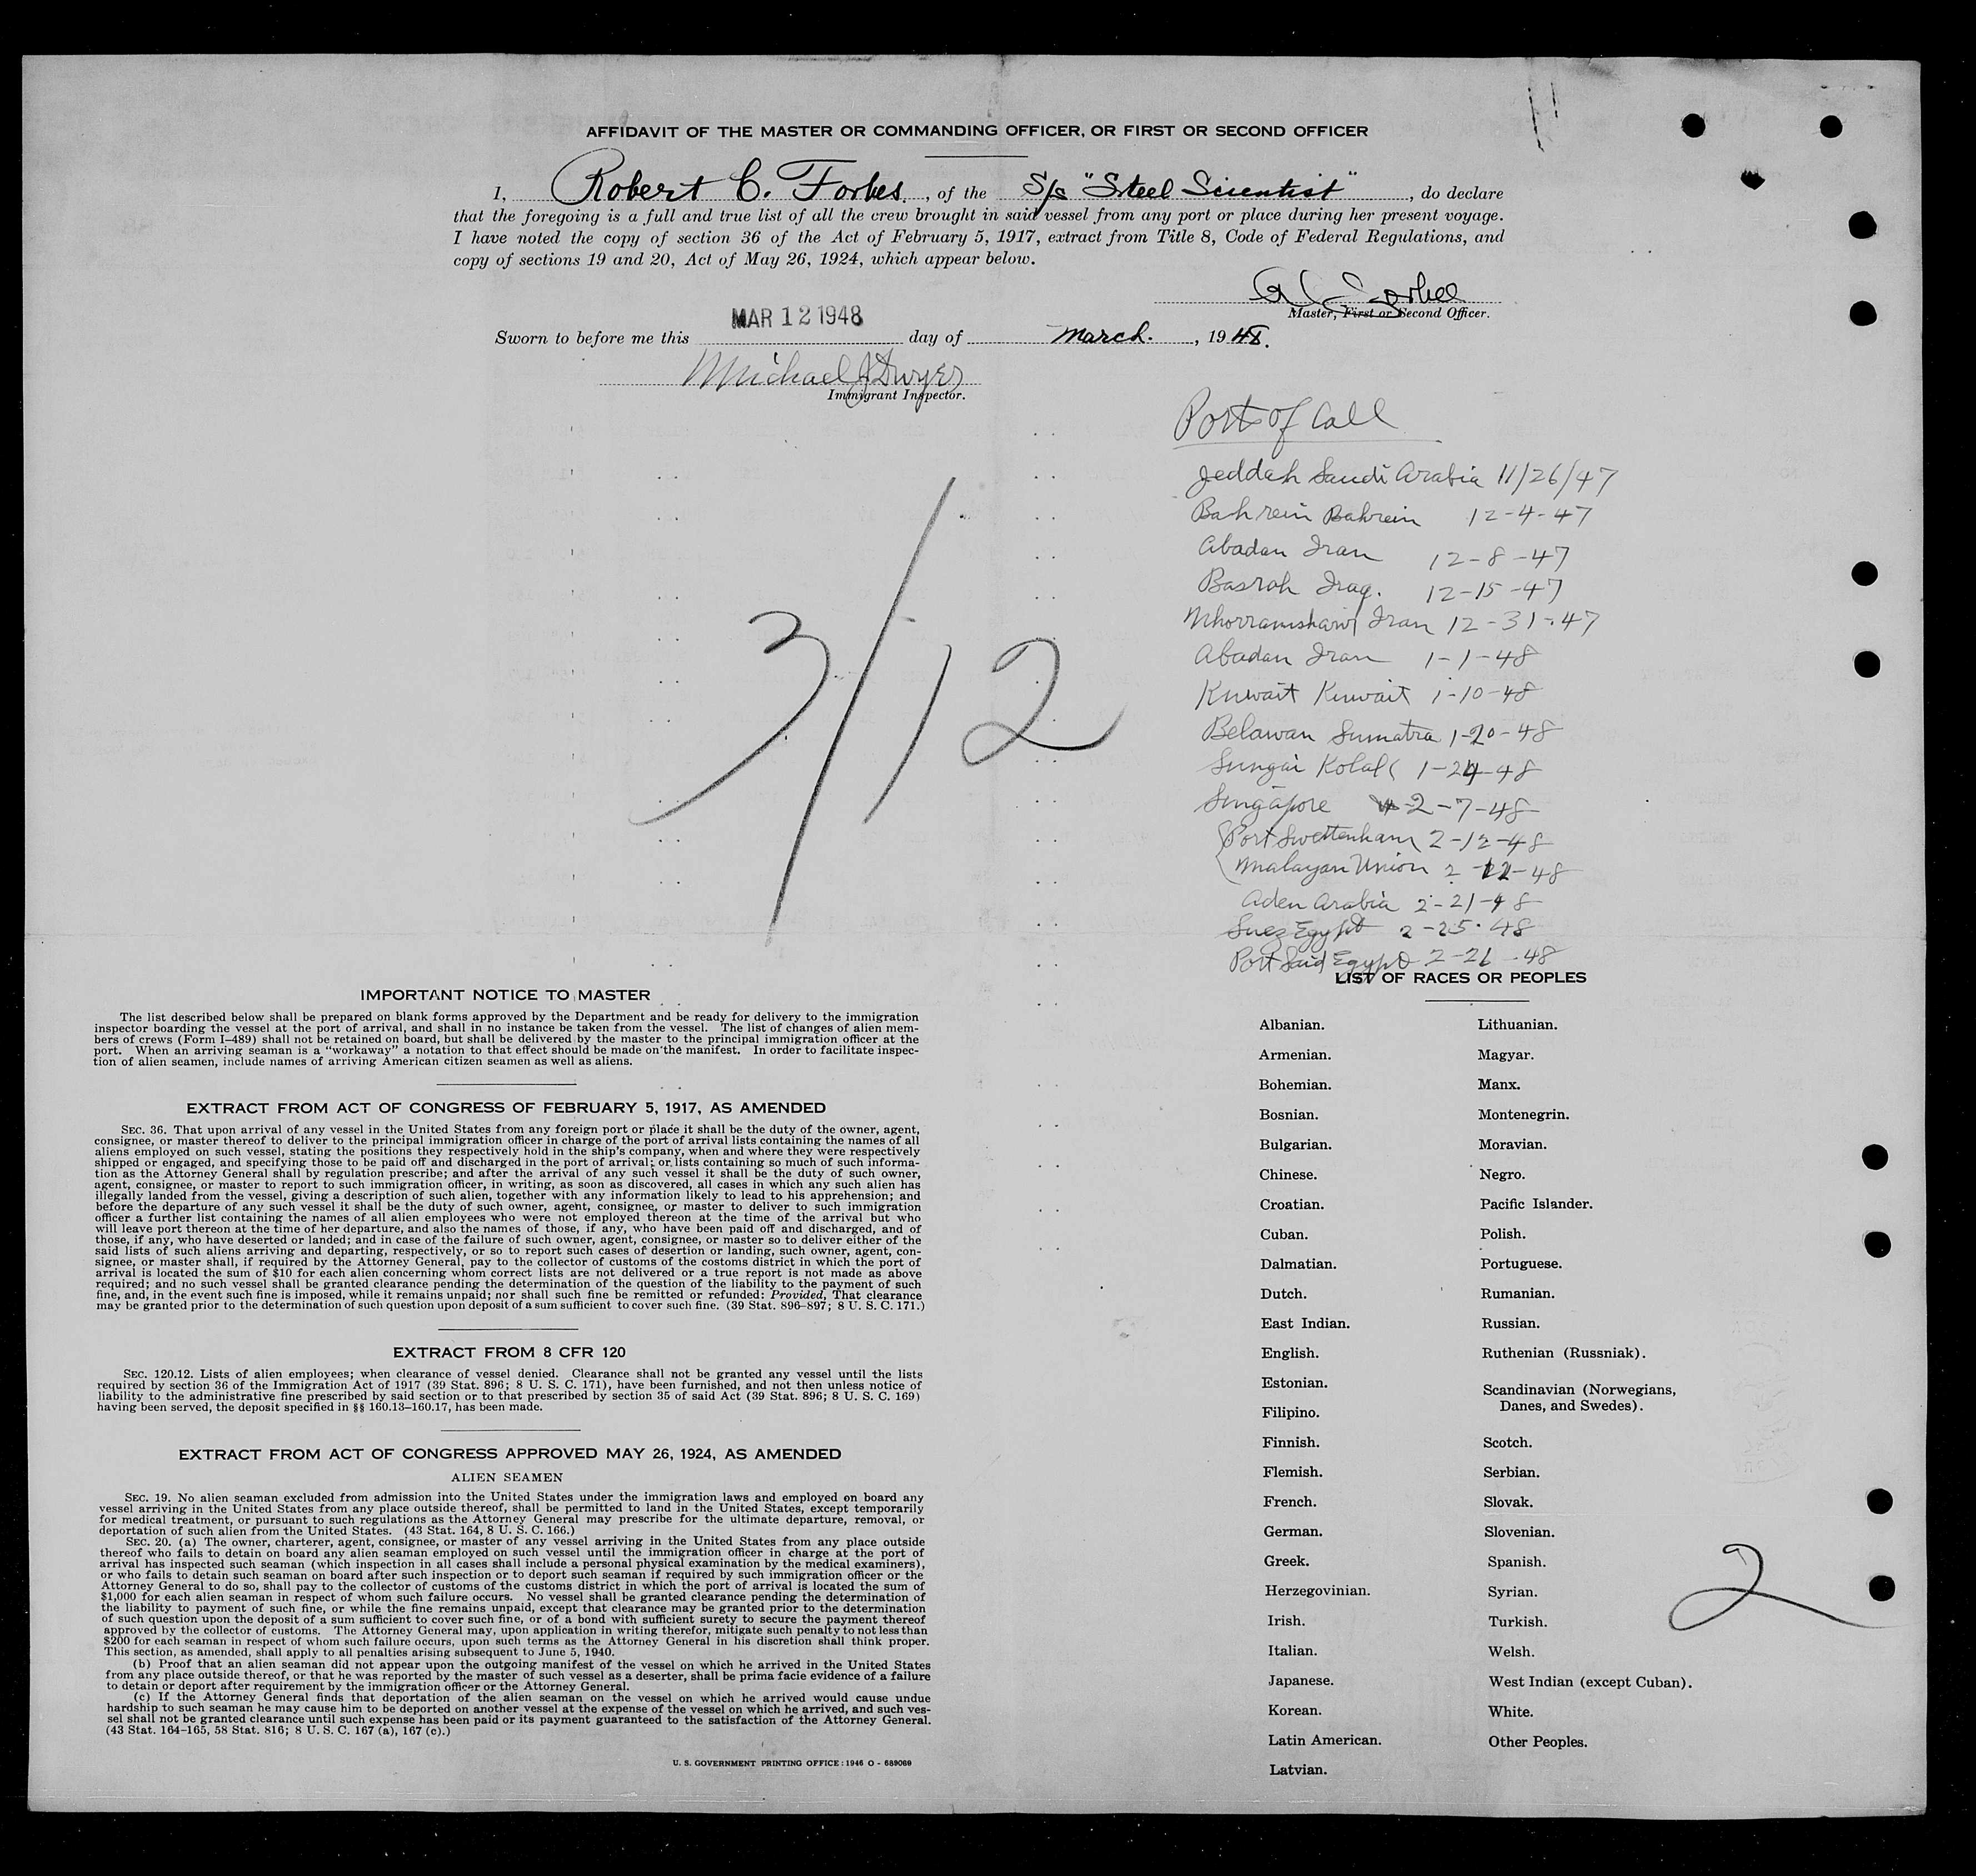 AFFIDAVIT OF THE MASTER OR COMMANDING OFFICER, OR FIRST OR SECOND OFFICER
I, Robert C. Forbes, of the S/s "Steel Scientist", do declare
that the foregoing is a full and true list of all the crew brought in said vessel from any port or place during her present voyage.
I have noted the copy of section 36 of the Act of February 5, 1917, extract from Title 8, Code of Federal Regulations, and
copy of sections 19 and 20, Act of May 26, 1924, which appear below.
R C Forbes
Master, First or Second Officer.
MAR 12 1948
Sworn to before me this day of March. , 1948.
Michael J Dwyer
Immigrant Inspector.
Port of Call
Jeddah Saudi Arabia 11/26/47
Bahrein Bahrein 12-4-47
Abadan Iran 12-8-47
Basrah Iraq. 12-15-47
Iran 12-31-47
Abadan Iran 1-1-48
Kuwait Kuwait 1-10-48
Belawan Sumatra 1-20-48
Sungai Kolak 1-24-48
Singapore 2-7-48
Port Swettenham 2-12-48
Malayan Union 2-12-48
Aden Arabia 2-21-48
Suez Egypt 2-25-48
Port Said Egypt 2-26-48
3/12
IMPORTANT NOTICE TO MASTER
The list described below shall be prepared on blank forms approved by the Department and be ready for delivery to the immigration
inspector boarding the vessel at the port of arrival, and shall in no instance be taken from the vessel. The list of changes of alien mem-
bers of crews (Form I–489) shall not be retained on board, but shall be delivered by the master to the principal immigration officer at the
port. When an arriving seaman is a "workaway" a notation to that effect should be made on the manifest. In order to facilitate inspec-
tion of alien seamen, include names of arriving American citizen seamen as well as aliens.
EXTRACT FROM ACT OF CONGRESS OF FEBRUARY 5, 1917, AS AMENDED
SEC. 36. That upon arrival of any vessel in the United States from any foreign port or place it shall be the duty of the owner, agent,
consignee, or master thereof to deliver to the principal immigration officer in charge of the port of arrival lists containing the names of all
aliens employed on such vessel, stating the positions they respectively hold in the ship's company, when and where they were respectively
shipped or engaged, and specifying those to be paid off and discharged in the port of arrival; or lists containing so much of such informa-
tion as the Attorney General shall by regulation prescribe; and after the arrival of any such vessel it shall be the duty of such owner,
agent, consignee, or master to report to such immigration officer, in writing, as soon as discovered, all cases in which any such alien has
illegally landed from the vessel, giving a description of such alien, together with any information likely to lead to his apprehension; and
before the departure of any such vessel it shall be the duty of such owner, agent, consignee, or master to deliver to such immigration
officer a further list containing the names of all alien employees who were not employed thereon at the time of the arrival but who
will leave port thereon at the time of her departure, and also the names of those, if any, who have been paid off and discharged, and of
those, if any, who have deserted or landed; and in case of the failure of such owner, agent, consignee, or master so to deliver either of the
said lists of such aliens arriving and departing, respectively, or so to report such cases of desertion or landing, such owner, agent, con-
signee, or master shall, if required by the Attorney General, pay to the collector of customs of the costoms district in which the port of
arrival is located the sum of $10 for each alien concerning whom correct lists are not delivered or a true report is not made as above
required; and no such vessel shall be granted clearance pending the determination of the question of the liability to the payment of such
fine, and, in the event such fine is imposed, while it remains unpaid; nor shall such fine be remitted or refunded: Provided, That clearance
may be granted prior to the determination of such question upon deposit of a sum sufficient to cover such fine. (39 Stat. 896–897; 8 U. S. C. 171.)
EXTRACT FROM 8 CFR 120
SEC. 120.12. Lists of alien employees; when clearance of vessel denied. Clearance shall not be granted any vessel until the lists
required by section 36 of the Immigration Act of 1917 (39 Stat. 896; 8 U. S. C. 171), have been furnished, and not then unless notice of
liability to the administrative fine prescribed by said section or to that prescribed by section 35 of said Act (39 Stat. 896; 8 U. S. C. 169)
having been served, the deposit specified in §§ 160.13–160.17, has been made.
EXTRACT FROM ACT OF CONGRESS APPROVED MAY 26, 1924, AS AMENDED
ALIEN SEAMEN
SEC. 19. No alien seaman excluded from admission into the United States under the immigration laws and employed on board any
vessel arriving in the United States from any place outside thereof, shall be permitted to land in the United States, except temporarily
for medical treatment, or pursuant to such regulations as the Attorney General may prescribe for the ultimate departure, removal, or
deportation of such alien from the United States. (43 Stat. 164, 8 U. S. C. 166.)
SEC. 20. (a) The owner, charterer, agent, consignee, or master of any vessel arriving in the United States from any place outside
thereof who fails to detain on board any alien seaman employed on such vessel until the immigration officer in charge at the port of
arrival has inspected such seaman (which inspection in all cases shall include a personal physical examination by the medical examiners),
or who fails to detain such seaman on board after such inspection or to deport such seaman if required by such immigration officer or the
Attorney General to do so, shall pay to the collector of customs of the customs district in which the port of arrival is located the sum of
$1,000 for each alien seaman in respect of whom such failure occurs. No vessel shall be granted clearance pending the determination of
the liability to payment of such fine, or while the fine remains unpaid, except that clearance may be granted prior to the determination
of such question upon the deposit of a sum sufficient to cover such fine, or of a bond with sufficient surety to secure the payment thereof
approved by the collector of customs. The Attorney General may, upon application in writing therefor, mitigate such penalty to not less than
$200 for each seaman in respect of whom such failure occurs, upon such terms as the Attorney General in his discretion shall think proper.
This section, as amended, shall apply to all penalties arising subsequent to June 5, 1940.
(b) Proof that an alien seaman did not appear upon the outgoing manifest of the vessel on which he arrived in the United States
from any place outside thereof, or that he was reported by the master of such vessel as a deserter, shall be prima facie evidence of a failure
to detain or deport after requirement by the immigration officer or the Attorney General.
(c) If the Attorney General finds that deportation of the alien seaman on the vessel on which he arrived would cause undue
hardship to such seaman he may cause him to be deported on another vessel at the expense of the vessel on which he arrived, and such ves-
sel shall not be granted clearance until such expense has been paid or its payment guaranteed to the satisfaction of the Attorney General.
(43 Stat. 164–165, 58 Stat. 816; 8 U. S. C. 167 (a), 167 (c).)
U. S. GOVERNMENT PRINTING OFFICE : 1946 O - 689069
LIST OF RACES OR PEOPLES
Albanian.
Armenian.
Bohemian.
Bosnian.
Bulgarian.
Chinese.
Croatian.
Cuban.
Dalmatian.
Dutch.
East Indian.
English.
Estonian.
Filipino.
Finnish.
Flemish.
French.
German.
Greek.
Herzegovinian.
Irish.
Italian.
Japanese.
Korean.
Latin American.
Latvian.
Lithuanian.
Magyar.
Manx.
Montenegrin.
Moravian.
Negro.
Pacific Islander.
Polish.
Portuguese.
Rumanian.
Russian.
Ruthenian (Russniak).
Scandinavian (Norwegians,
Danes, and Swedes).
Scotch.
Serbian.
Slovak.
Slovenian.
Spanish.
Syrian.
Turkish.
Welsh.
West Indian (except Cuban).
White.
Other Peoples.
2